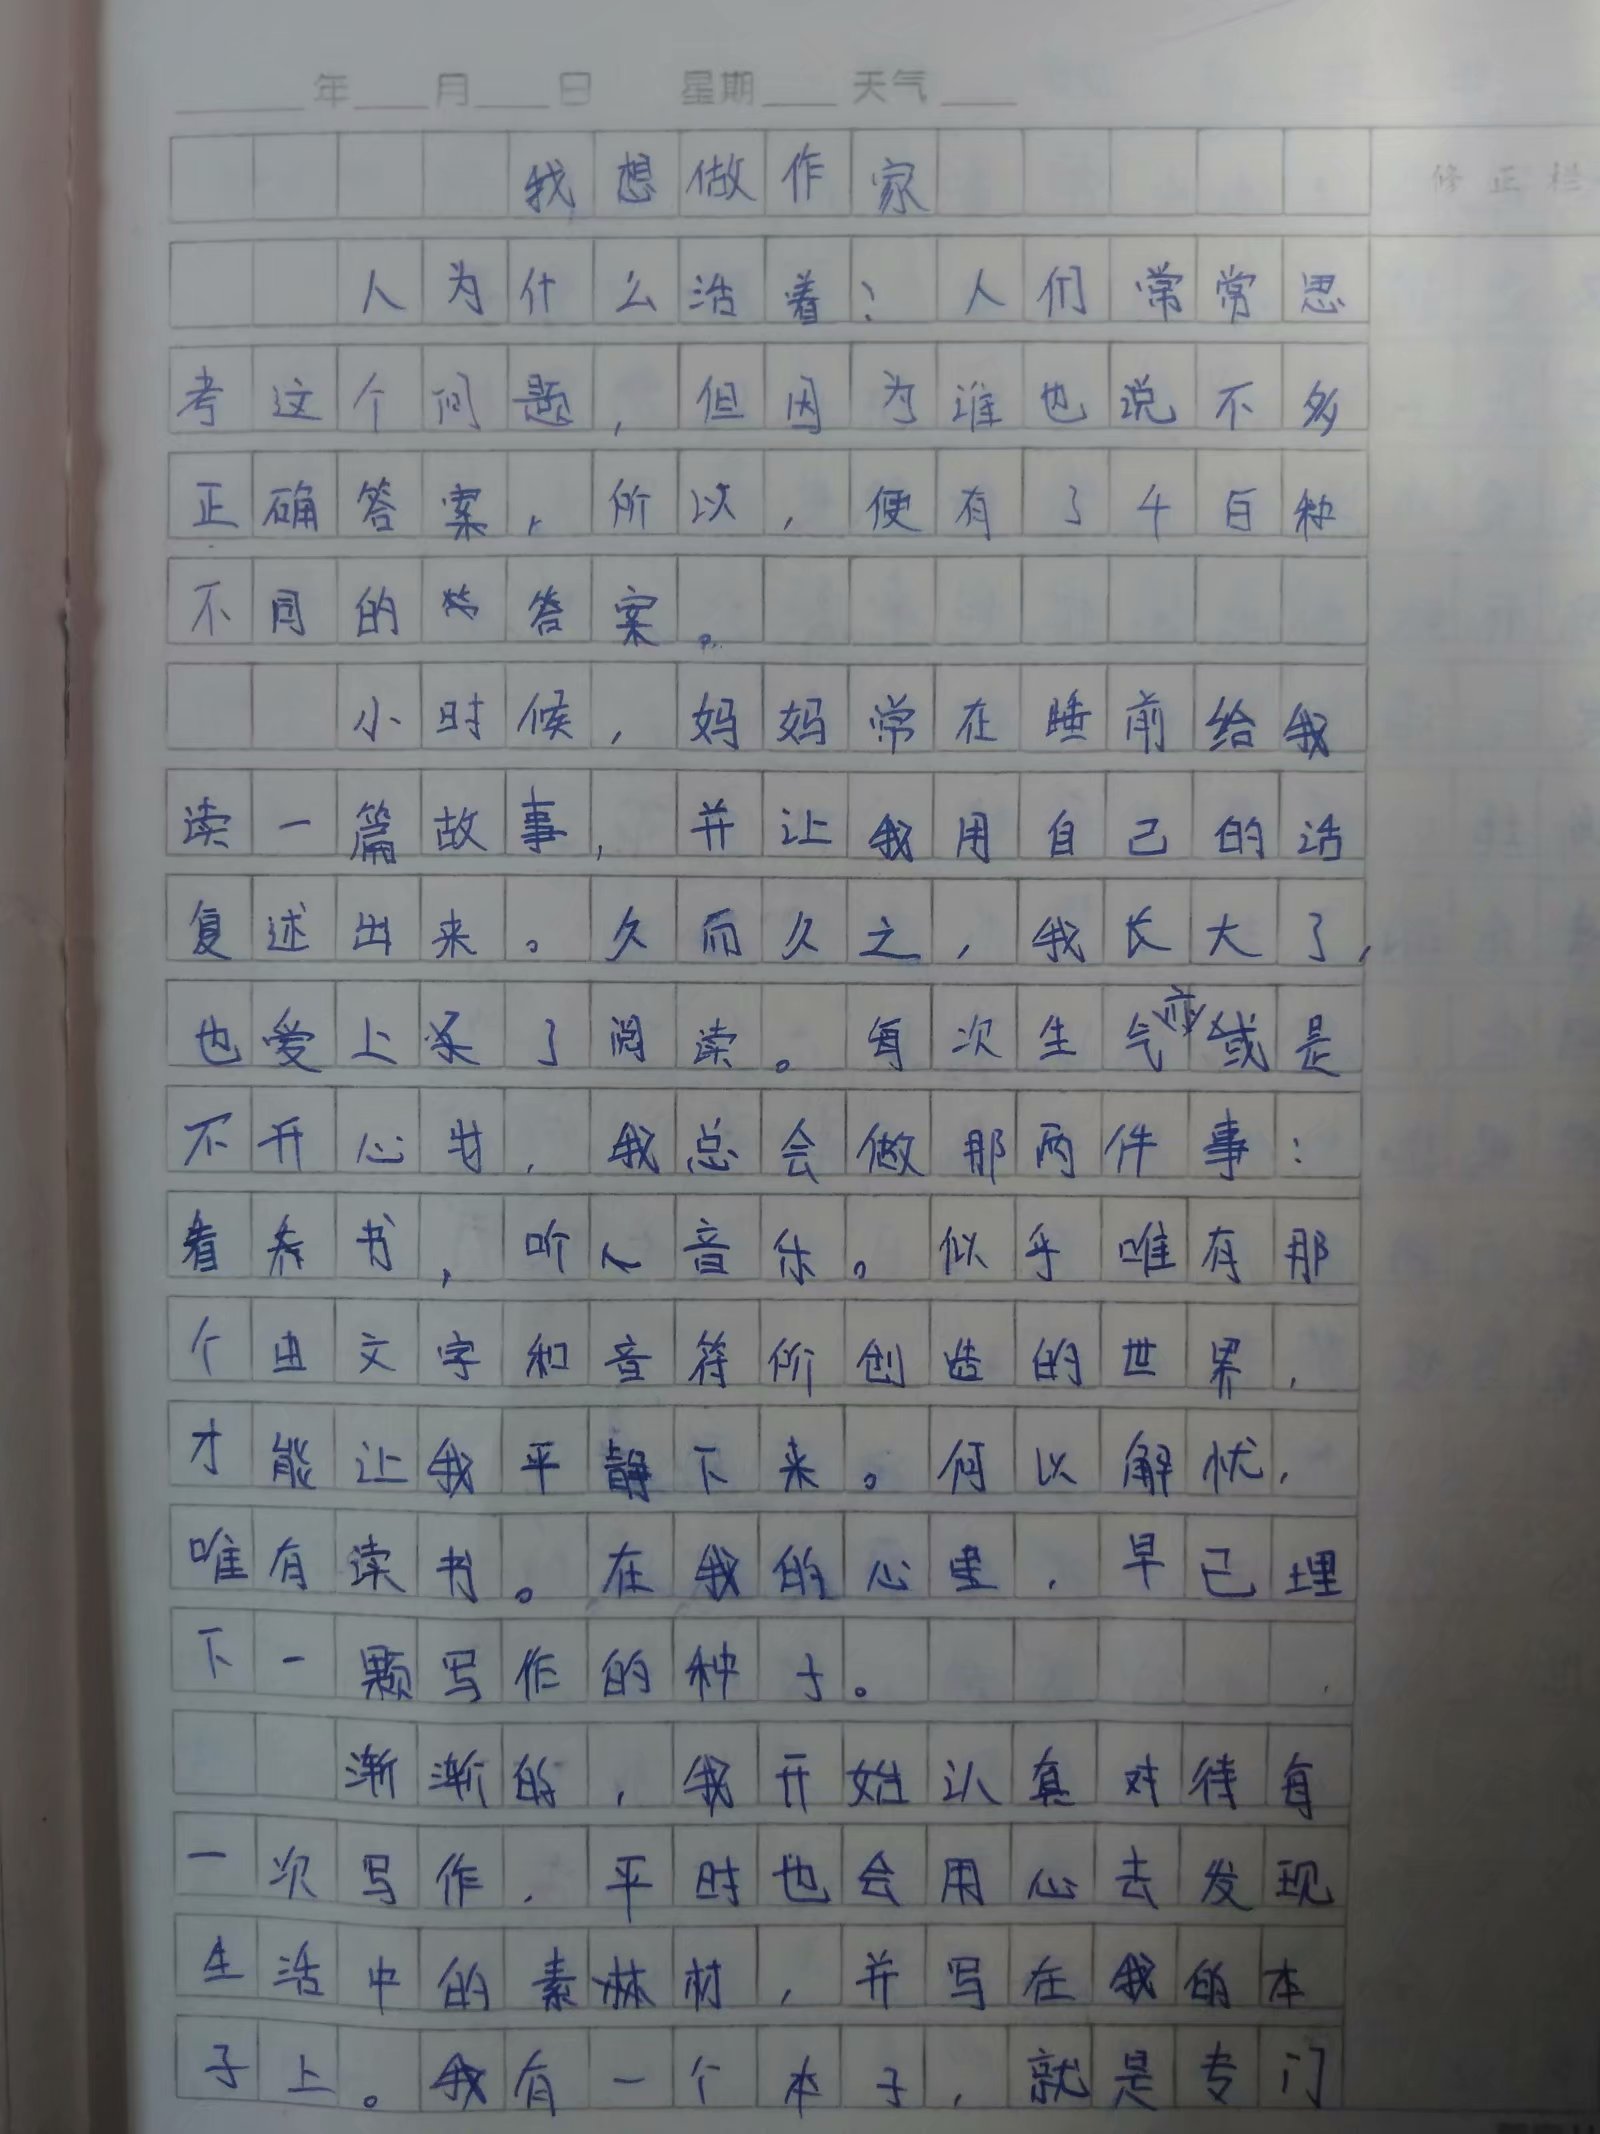 年 月 日 星期 天气
修正栏
我想做作家
人为什么活着？人们常常思
考这个问题，但因为谁也说不多
正确答案，所以，便有了千百种
不同的答案。
小时候，妈妈常在睡前给我
读一篇故事，并让我用自己的话
复述出来。久而久之，我长大了，
也爱上了阅读。每次生气亦或是
不开心时，我总会做那两件事：
看书，听音乐。似乎唯有那
个由文字和音符所创造的世界，
才能让我平静下来。何以解忧，
唯有读书。在我的心里，早已埋
下一颗写作的种子。
渐渐的，我开始认真对待每
一次写作，平时也会用心去发现
生活中的素材，并写在我的本
子上。我有一个本子，就是专门